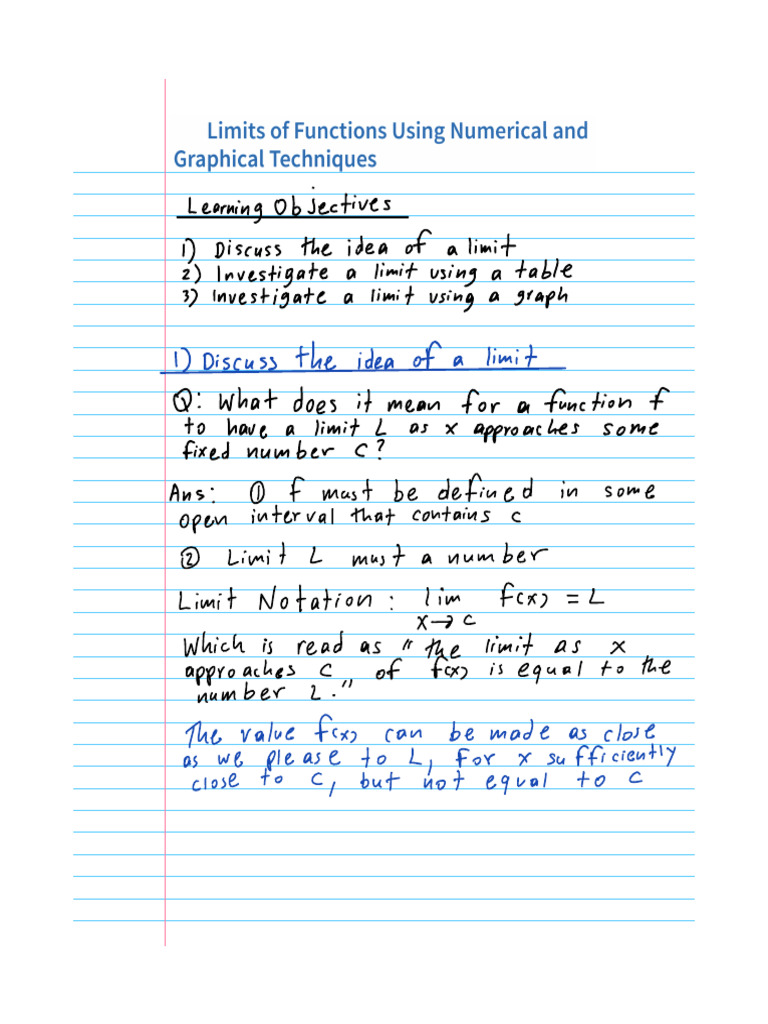 Limits of Functions Using Numerical and
Graphical Techniques
Learning Objectives
1) Discuss the idea of a limit
2) Investigate a limit using a table
3) Investigate a limit using a graph
1) Discuss the idea of a limit
Q: What does it mean for a function f
to have a limit L as x approaches some
fixed number c?
Ans: ① f must be defined in some
open interval that contains c
② Limit L must a number
Limit Notation: lim f(x) = L
x→c
Which is read as "the limit as x
approaches c of f(x) is equal to the
number L."
The value f(x) can be made as close
as we please to L, for x sufficiently
close to c, but not equal to c